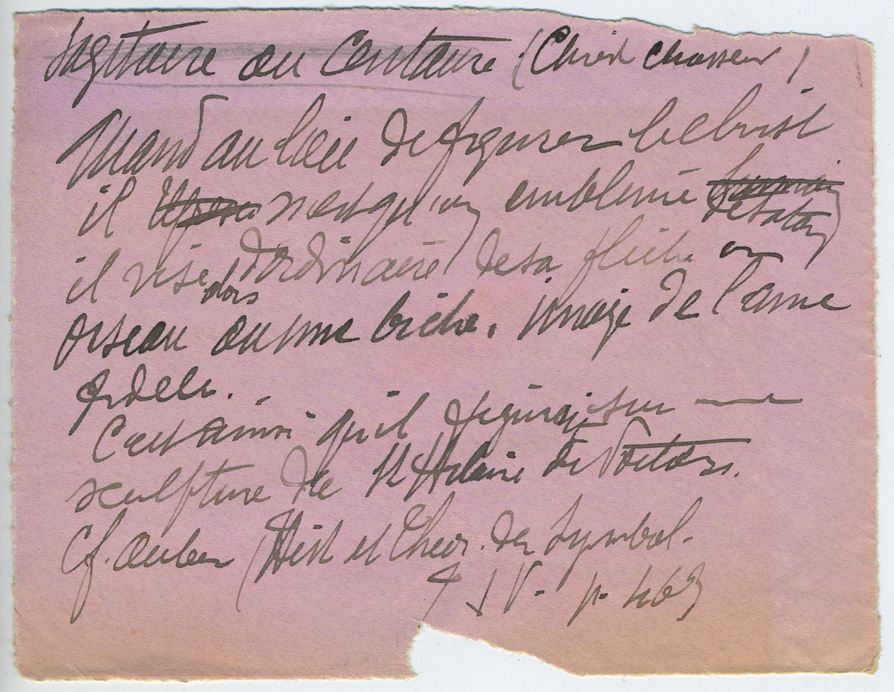 Sagittaire ou Centaure (Christ chasseur)
Quand au lieu de figurer le Christ
il n'est qu'un emblème de Satan
il vise alors d'ordinaire de sa flèche un
oiseau ou une biche. image de l'ame
fidèle.
C'est ainsi qu'il figurait sur une
sculpture de St Hilaire de Poitiers.
Cf. Auber (Hist et Theor. du Symbol.
T IV. p.